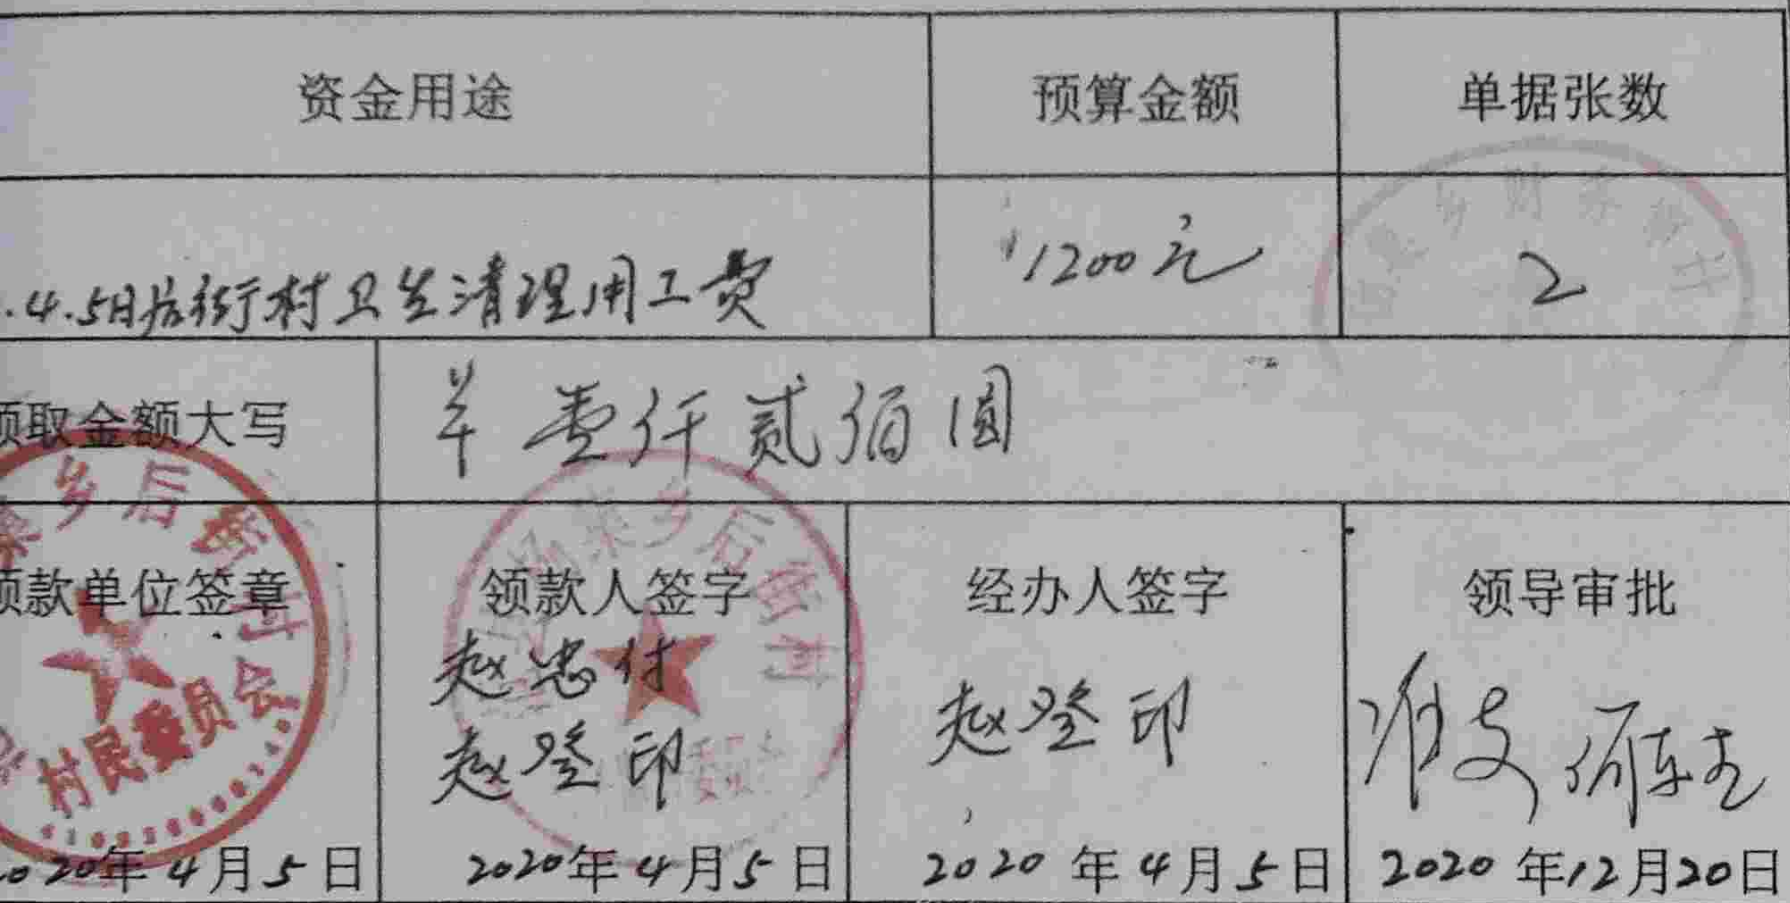 资金用途 预算金额 单据张数
.4.5日后街村卫生清理用工费 1200元 2
领取金额大写 羊 壹仟贰佰圆
乡后街村
村民委员会
乡后街村
领款单位签章 领款人签字 经办人签字 领导审批
赵忠付
赵登印 赵登印 准支
2020年4月5日 2020年4月5日 2020年4月5日 2020年12月20日